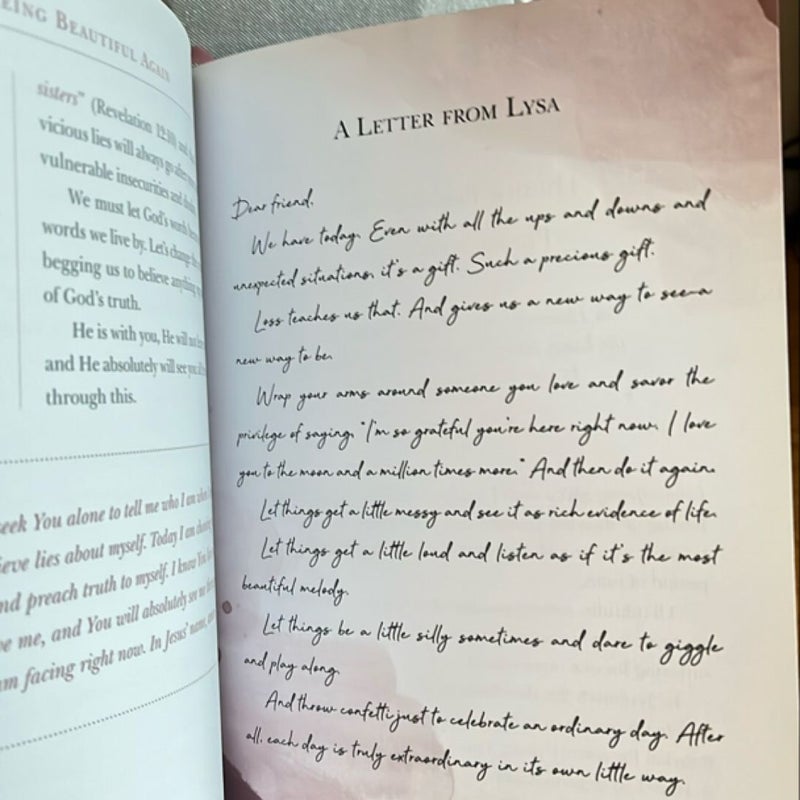 EING BEAUTIFUL AGAIN
sisters" (Revelation 12:10) and
vicious lies will always go after your
vulnerable insecurities and doubts
We must let God's words
words we live by. Let's change
begging us to believe anything
of God's truth.
He is with you, He will not
and He absolutely will see you
through this.
eek You alone to tell me who I am
ieve lies about myself. Today I am
nd preach truth to myself. I know You
e me, and You will absolutely see me
m facing right now. In Jesus' name,
A LETTER FROM LYSA
Dear friend,
We have today. Even with all the ups and downs and
unexpected situations, it's a gift. Such a precious gift.
Loss teaches us that. And gives us a new way to see—a
new way to be.
Wrap your arms around someone you love and savor the
privilege of saying, "I'm so grateful you're here right now. I love
you to the moon and a million times more." And then do it again.
Let things get a little messy and see it as rich evidence of life.
Let things get a little loud and listen as if it's the most
beautiful melody.
Let things be a little silly sometimes and dare to giggle
and play along.
And throw confetti just to celebrate an ordinary day. After
all, each day is truly extraordinary in its own little way.